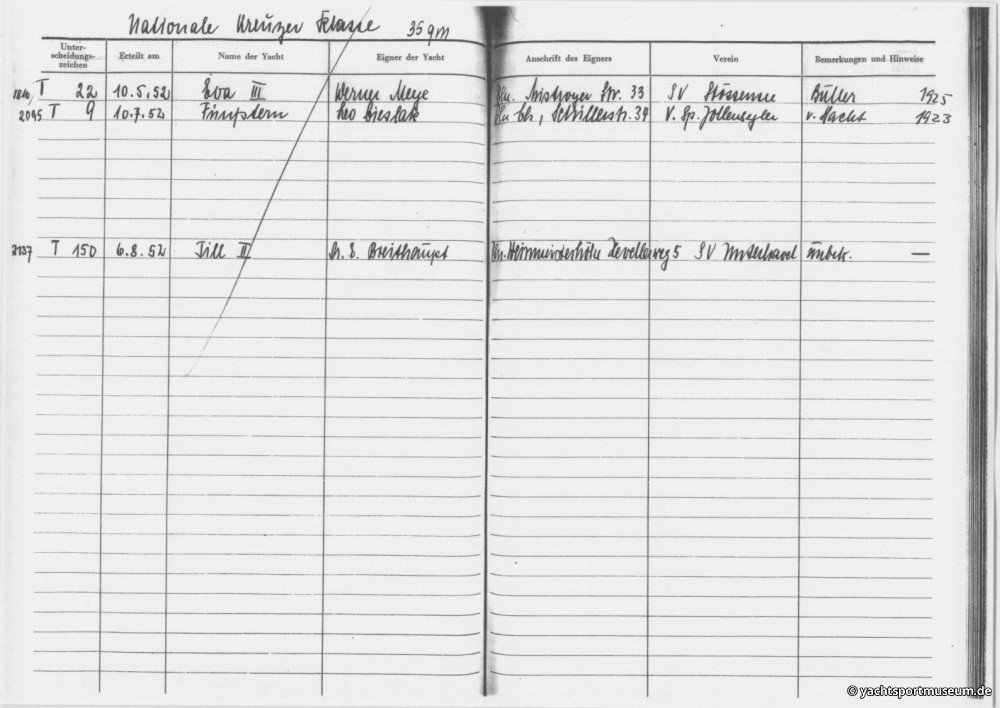 Nationale Kreuzer Klasse 35 qm
Unter-scheidungs-zeichen Erteilt am Name der Yacht Eigner der Yacht Anschrift des Eigners Verein Bemerkungen und Hinweise
T 22 10.5.52 Eva III Werner Bln. Str. 33 SV Stössensee Buller 1925
2095 T 9 10.7.52 Fünfstern Leo Bln Ch, Schillerstr. 34 V. Sp. Jollensegler v. Hacht 1923
2137 T 150 6.8.52 Till II Dr. E. Breithaupt Bln. 5 SV Unterhavel unbek. —
© yachtsportmuseum.de